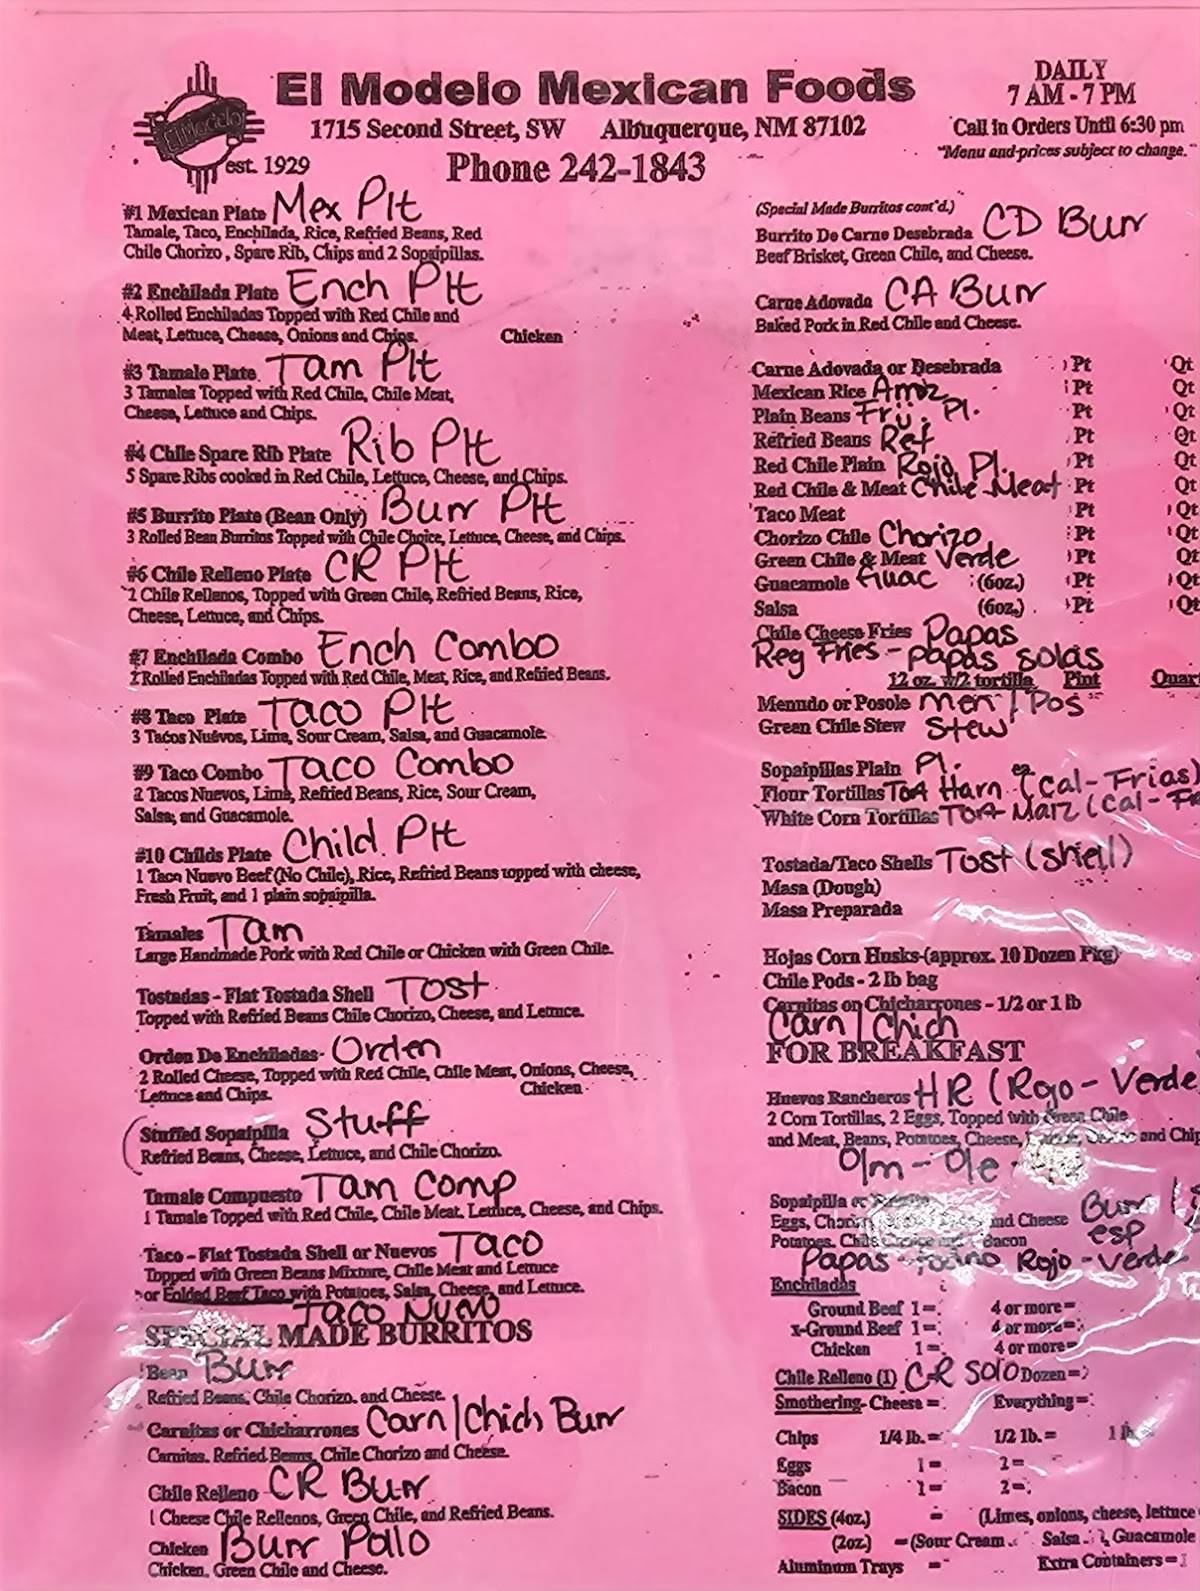 El Modelo Mexican Foods
1715 Second Street, SW Albuquerque, NM 87102
Phone 242-1843
El Modelo
est. 1929
DAILY
7 AM - 7 PM
Call in Orders Until 6:30 pm
"Menu and prices subject to change."
#1 Mexican Plate Mex Plt
Tamale, Taco, Enchilada, Rice, Refried Beans, Red
Chile Chorizo, Spare Rib, Chips and 2 Sopaipillas.
#2 Enchilada Plate Ench Plt
4 Rolled Enchiladas Topped with Red Chile and
Meat, Lettuce, Cheese, Onions and Chips. Chicken
#3 Tamale Plate Tam Plt
3 Tamales Topped with Red Chile, Chile Meat,
Cheese, Lettuce and Chips.
#4 Chile Spare Rib Plate Rib Plt
5 Spare Ribs cooked in Red Chile, Lettuce, Cheese, and Chips.
#5 Burrito Plate (Bean Only) Burr Plt
3 Rolled Bean Burritos Topped with Chile Choice, Lettuce, Cheese, and Chips.
#6 Chile Relleno Plate CR Plt
2 Chile Rellenos, Topped with Green Chile, Refried Beans, Rice,
Cheese, Lettuce, and Chips.
#7 Enchilada Combo Ench Combo
2 Rolled Enchiladas Topped with Red Chile, Meat, Rice, and Refried Beans.
#8 Taco Plate Taco Plt
3 Tacos Nuevos, Lime, Sour Cream, Salsa, and Guacamole.
#9 Taco Combo Taco Combo
2 Tacos Nuevos, Lime, Refried Beans, Rice, Sour Cream,
Salsa, and Guacamole.
#10 Childs Plate Child Plt
1 Taco Nuevo Beef (No Chile), Rice, Refried Beans topped with cheese,
Fresh Fruit, and 1 plain sopaipilla.
Tamales Tam
Large Handmade Pork with Red Chile or Chicken with Green Chile.
Tostadas - Flat Tostada Shell Tost
Topped with Refried Beans Chile Chorizo, Cheese, and Lettuce.
Orden De Enchiladas- Orden
2 Rolled Cheese, Topped with Red Chile, Chile Meat, Onions, Cheese,
Lettuce and Chips. Chicken
Stuffed Sopaipilla Stuff
Refried Beans, Cheese, Lettuce, and Chile Chorizo.
Tamale Compuesto Tam Comp
1 Tamale Topped with Red Chile, Chile Meat, Lettuce, Cheese, and Chips.
Taco - Flat Tostada Shell or Nuevos Taco
Topped with Green Beans Mixture, Chile Meat and Lettuce
or Folded Beef Taco with Potatoes, Salsa, Cheese, and Lettuce.
Taco Nuvo
SPECIAL MADE BURRITOS
Bean Burr
Refried Beans, Chile Chorizo, and Cheese.
Carnitas or Chicharrones Carn/Chich Burr
Carnitas, Refried Beans, Chile Chorizo and Cheese.
Chile Relleno CR Burr
1 Cheese Chile Rellenos, Green Chile, and Refried Beans.
Chicken Burr Pollo
Chicken, Green Chile and Cheese.
(Special Made Burritos cont'd.)
Burrito De Carne Desebrada CD Burr
Beef Brisket, Green Chile, and Cheese.
Carne Adovada CA Burr
Baked Pork in Red Chile and Cheese.
Carne Adovada or Desebrada Pt Qt
Mexican Rice Arroz Pt Qt
Plain Beans Frij. Pl. Pt Qt
Refried Beans Ref Pt Qt
Red Chile Plain Rojo Pl. Pt Qt
Red Chile & Meat Chile Meat Pt Qt
Taco Meat Pt Qt
Chorizo Chile Chorizo Pt Qt
Green Chile & Meat Verde Pt Qt
Guacamole Guac (6oz.) Pt Qt
Salsa (6oz.) Pt Qt
Chile Cheese Fries Papas
Reg Fries - papas solas
12 oz. w/2 tortilla Pint Quart
Menudo or Posole Men / Pos
Green Chile Stew Stew
Sopaipillas Plain Pl.
Flour Tortillas Harn (Cal-Frias)
White Corn Tortillas Maiz (Cal-
Tostada/Taco Shells Tost (shell)
Masa (Dough)
Masa Preparada
Hojas Corn Husks-(approx. 10 Dozen Pkg)
Chile Pods - 2 lb bag
Carnitas or Chicharrones - 1/2 or 1 lb
Carn / Chich
FOR BREAKFAST
Huevos Rancheros HR (Rojo - Verde
2 Corn Tortillas, 2 Eggs, Topped with Green Chile
and Meat, Beans, Potatoes, Cheese, and Chip
O/m - O/e
Sopaipilla or Burr
Eggs, and Cheese esp
Potatoes, Chile Choice Bacon
Papas Rojo - Verde
Enchiladas
Ground Beef 1= 4 or more=
x-Ground Beef 1= 4 or more=
Chicken 1= 4 or more=
Chile Relleno (1) CR Solo Dozen=
Smothering- Cheese= Everything=
Chips 1/4 lb.= 1/2 lb.=
Eggs 1= 2=
Bacon 1= 2=
SIDES (4oz.) = (Limes, onions, cheese, lettuce
(2oz.) =(Sour Cream Salsa Guacamole
Aluminum Trays = Extra Containers=